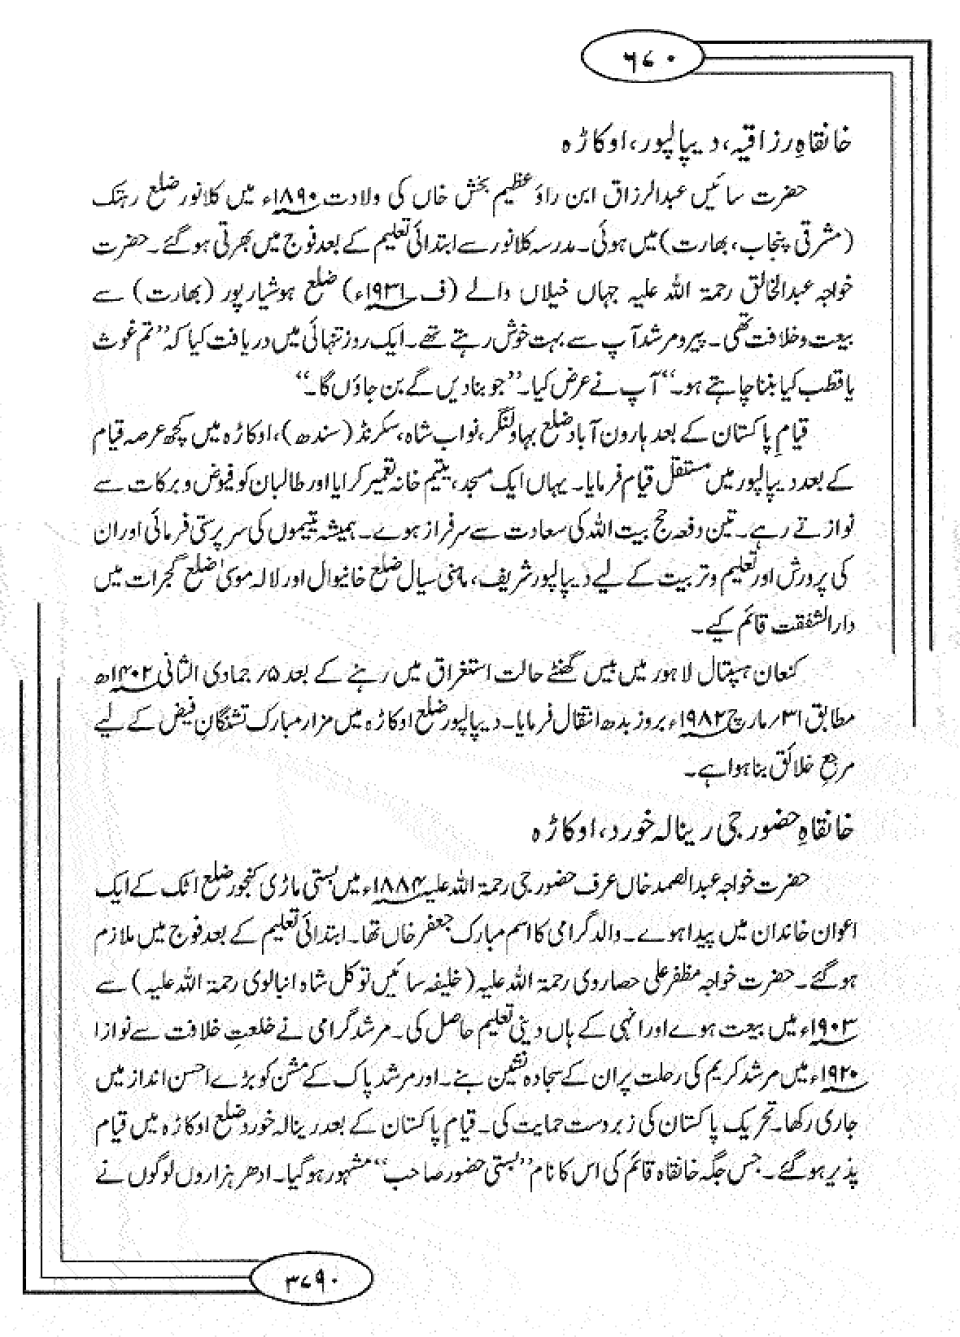 ۶۷۰
خانقاہِ رزاقیہ، دیپالپور، اوکاڑہ
حضرت سائیں عبدالرزاق ابن راؤ عظیم بخش خاں کی ولادت ۱۸۹۰ء میں کلانور ضلع رہتک
(مشرقی پنجاب، بھارت) میں ہوئی۔ مدرسہ کلانور سے ابتدائی تعلیم کے بعد فوج میں بھرتی ہو گئے۔ حضرت
خواجہ عبدالخالق رحمۃ اللہ علیہ جہاں خیلاں والے (ف ۱۹۳۱ء) ضلع ہوشیارپور (بھارت) سے
بیعت و خلافت تھی۔ پیر و مرشد آپ سے بہت خوش رہتے تھے۔ ایک روز تنہائی میں دریافت کیا کہ ”تم غوث
یا قطب کیا بننا چاہتے ہو۔“ آپ نے عرض کیا۔ ”جو بنا دیں گے بن جاؤں گا۔“
قیامِ پاکستان کے بعد ہارون آباد ضلع بہاولنگر، نواب شاہ، سکرنڈ (سندھ)، اوکاڑہ میں کچھ عرصہ قیام
کے بعد دیپالپور میں مستقل قیام فرمایا۔ یہاں ایک مسجد، یتیم خانہ تعمیر کرایا اور طالبان کو فیوض و برکات سے
نوازتے رہے۔ تین دفعہ حج بیت اللہ کی سعادت سے سرفراز ہوے۔ ہمیشہ یتیموں کی سرپرستی فرمائی اور ان
کی پرورش اور تعلیم و تربیت کے لیے دیپالپور شریف، ماہنی سیال ضلع خانیوال اور لالہ موسیٰ ضلع گجرات میں
دارالشفقت قائم کیے۔
کنعان ہسپتال لاہور میں بیس گھنٹے حالت استغراق میں رہنے کے بعد ۵؍ جمادی الثانی ۱۴۰۲ھ
مطابق ۳۱؍ مارچ ۱۹۸۲ء بروز بدھ انتقال فرمایا۔ دیپالپور ضلع اوکاڑہ میں مزار مبارک تشنگانِ فیض کے لیے
مرجعِ خلائق بنا ہوا ہے۔
خانقاہِ حضور جی رینالہ خورد، اوکاڑہ
حضرت خواجہ عبدالصمد خاں عرف حضور جی رحمۃ اللہ علیہ ۱۸۸۴ء میں بستی ماڑی کنجور ضلع اٹک کے ایک
اعوان خاندان میں پیدا ہوے۔ والد گرامی کا اسم مبارک جعفر خاں تھا۔ ابتدائی تعلیم کے بعد فوج میں ملازم
ہو گئے۔ حضرت خواجہ مظفر علی حصاروی رحمۃ اللہ علیہ (خلیفہ سائیں توکل شاہ انبالوی رحمۃ اللہ علیہ) سے
۱۹۰۳ء میں بیعت ہوے اور انہی کے ہاں دینی تعلیم حاصل کی۔ مرشد گرامی نے خلعتِ خلافت سے نوازا
۱۹۲۰ء میں مرشد کریم کی رحلت پر ان کے سجادہ نشین بنے۔ اور مرشد پاک کے مشن کو بڑے احسن انداز میں
جاری رکھا۔ تحریک پاکستان کی زبردست حمایت کی۔ قیامِ پاکستان کے بعد رینالہ خورد ضلع اوکاڑہ میں قیام
پذیر ہو گئے۔ جس جگہ خانقاہ قائم کی اس کا نام ”بستی حضور صاحب“ مشہور ہو گیا۔ ادھر ہزاروں لوگوں نے
۳۷۹۰